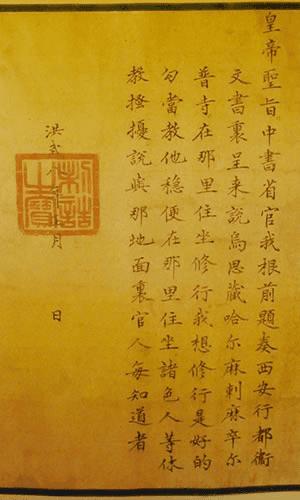 皇帝聖旨中書省官我根前題奏西安行都衛
文書裏呈来說烏思藏哈尔麻剌麻卒尔
普寺在那里住坐修行我想修行是好的
勾當教他穩便在那里住坐諸色人等休
教搔擾說與那地面裏官人每知道者
洪武 年 月 日
制誥之寶